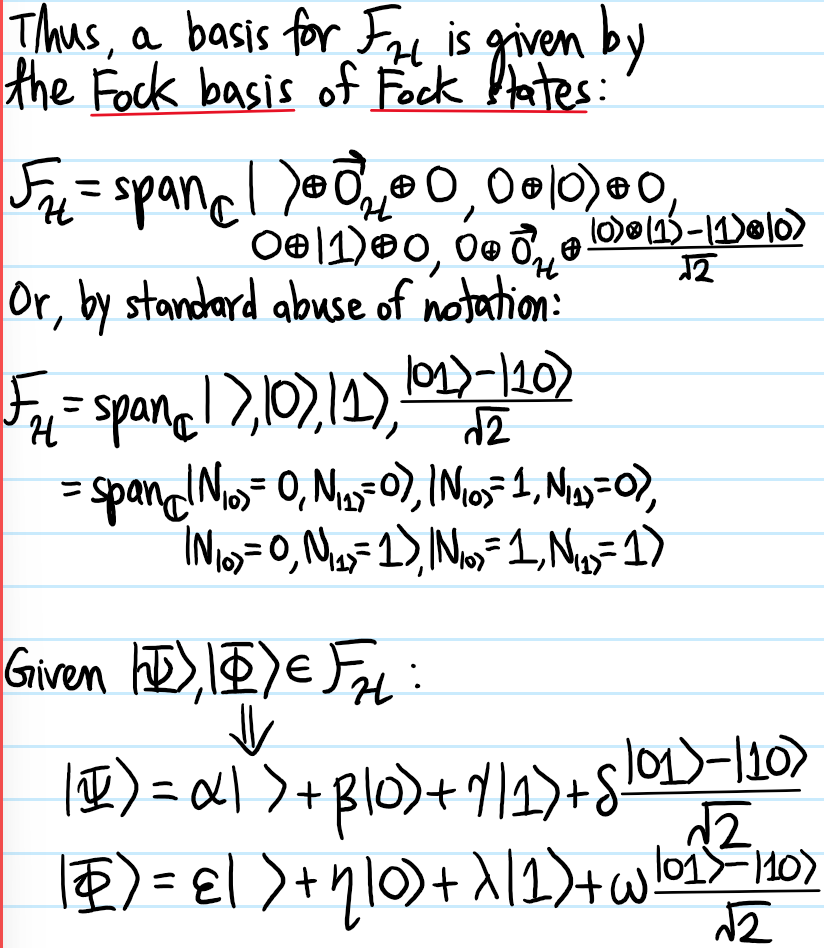 Thus, a basis for ℱ_ℋ is given by
the Fock basis of Fock states:
ℱ_ℋ = span_ℂ | ⟩⊕0⃗_ℋ⊕0, 0⊕|0⟩⊕0,
0⊕|1⟩⊕0, 0⊕0⃗_ℋ⊕(|0⟩⊗|1⟩-|1⟩⊗|0⟩)/√2
Or, by standard abuse of notation:
ℱ_ℋ = span_ℂ | ⟩,|0⟩,|1⟩, (|01⟩-|10⟩)/√2
= span_ℂ|N_|0⟩=0, N_|1⟩=0⟩, |N_|0⟩=1, N_|1⟩=0⟩,
|N_|0⟩=0, N_|1⟩=1⟩, |N_|0⟩=1, N_|1⟩=1⟩
Given |Ψ⟩,|Φ⟩∈ ℱ_ℋ :
⇓
|Ψ⟩ = α| ⟩+β|0⟩+γ|1⟩+δ(|01⟩-|10⟩)/√2
|Φ⟩ = ε| ⟩+η|0⟩+λ|1⟩+ω(|01⟩-|10⟩)/√2